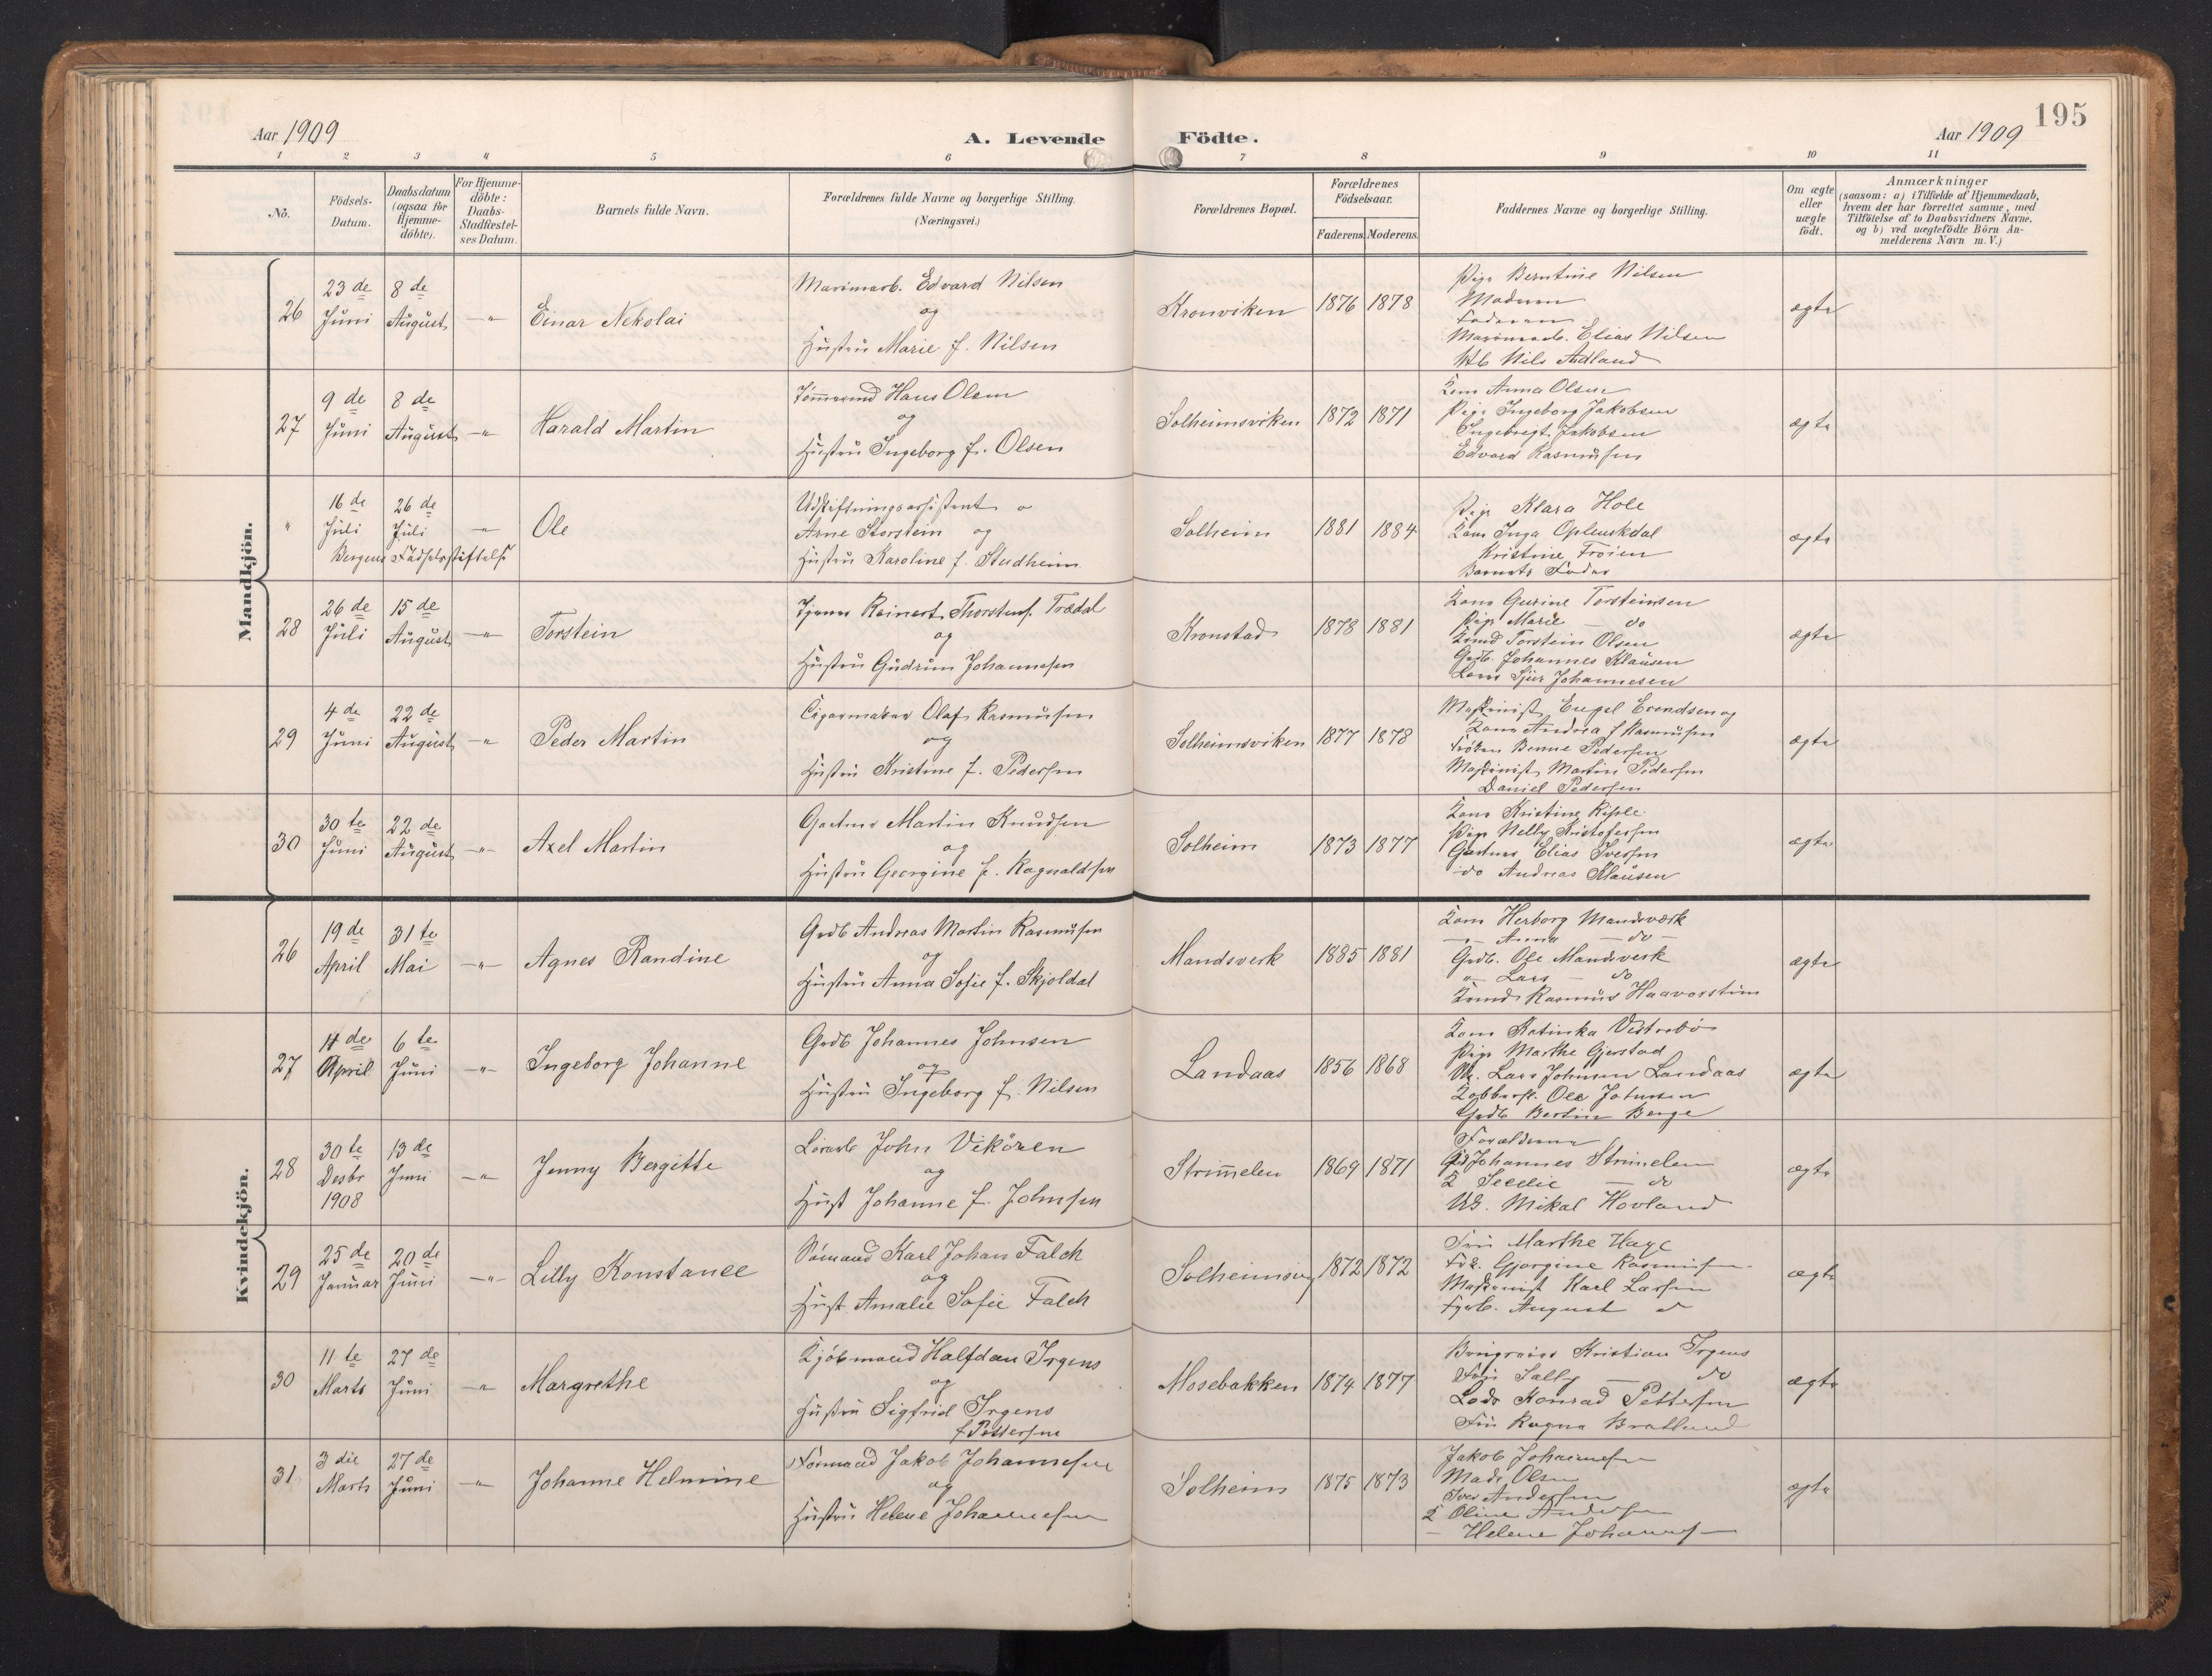 195
Aar 1909
A. Levende Födte.
Aar 1909
1 2 3 4 5 6 7 8 9 10 11
No.
Födsels-Datum.
Daabsdatum (ogsaa for Hjemme-döbte).
For Hjemme-döbte: Daabs-Stadfæstel-ses Datum.
Barnets fulde Navn.
Forældrenes fulde Navne og borgerlige Stilling. (Næringsvei.)
Forældrenes Bopæl.
Forældrenes Födselsaar.
Faderens Moderens
Faddernes Navne og borgerlige Stilling.
Om ægte eller uægte födt.
Anmærkninger (saasom: a) i Tilfælde af Hjemmedaab, hvem der har forrettet samme, med Tilföielse af to Daabsvidners Navne. og b) ved uægtefödte Börn An-melderens Navn m.V.)
Mandkjön.
26 23 de Juni 8 de August -"- Einar Nekolai
Edvard Nilsen
og
Hustru Marie f. Nilsen
Kronviken 1876 1878
Pige Berntine Nilsen
Moderen
Faderen
Elias Nilsen
Nils Adland
ægte
27 9 de Juni 8 de August -"- Harald Martin
Tömmermd Hans Olsen
og
Hustru Ingeborg f. Olsen
Solheimsviken 1872 1871
Kone Anna Olsen
Pige Ingeborg Jakobsen
Ingebregt Jakobsen
Edvard Rasmusen
ægte
" 16 de Juli 26 de Juli -"- Ole
Bergens Födselsstiftelse
Udskiftningsassistent
Arne Storstein og
Hustru Karoline f. Studheim
Solheim 1881 1884
Pige Klara Hole
Kone Inga
Kristine Troien
Barnets Fader
ægte
28 26 de Juli 15 de August -"- Torstein
Reinert Thorstens. Trædal
og
Hustru Gudrun Johannesen
Kronstad 1878 1881
Kone Gurine Torsteinsen
Pige Marie - do
Torstein Olsen
Grdb. Johannes Klausen
Sjur Johannesen
ægte
29 4 de Juni 22 de August -"- Peder Martin
Cigarmaker Olaf Rasmusen
og
Hustru Kristine f. Pedersen
Solheimsviken 1877 1878
Maskinist Engel Evendsen og
Kone Andrea f Rasmusen
Fröken Benne Pedersen
Maskinist Martin Pedersen
Daniel Pedersen
ægte
30 30 te Juni 22 de August -"- Axel Martin
Gartner Martin Knudsen
og
Hustru Georgine f. Ragnaldsen
Solheim 1873 1877
Kone Kristine Riple
Pige Nelly Kristofersen
Gartner Elias Iversen
do Andreas Klausen
ægte
Kvindekjön.
26 19 de April 31 te Mai -"- Agnes Randine
Grdb Andreas Martin Rasmusen
og
Hustru Anna Sofie f. Skjoldal
Mandsverk 1885 1881
Kone Herborg Mandsværk
-"- Anna - do -
Grdb. Ole Mandsverk
-"- Lars - do
Rasmus Haavorstun
ægte
27 11 de April 6 te Juni -"- Ingeborg Johanne
Grdb Johannes Johnsen
og
Hustru Ingeborg f. Nilsen
Landaas 1856 1868
Kone Katinka Vestrebö
Pige Marthe Gjerstad
Uk. Lars Johnsen Landaas
Kobbersl. Ole Johnsen
Grdb Bertin Berge
ægte
28 30 te Desbr 1908 13 de Juni -"- Jenny Bergitte
John Vikören
og
Hust Johanne f. Johnsen
Strimmelen 1869 1871
Forældrene
Johannes Strimelen
K - do
Uk. Mikal Hovland
ægte
29 25 de Januar 20 de Juni -"- Lilly Konstanee
Sömand Karl Johan Falch
og
Hust Amalie Sofie Falch
Solheimsvig 1872 1872
Fru Marthe Hage
Frk. Gjorgine Rasmusen
Maskinist Karl Larsen
Fyrb. August do
ægte
30 11 te Marts 27 de Juni -"- Margrethe
Kjöbmand Halfdan Irgens
og
Hustru Sigfrid Irgens
f Pettersen
Mosebakken 1874 1877
Kristian Irgens
Fru Sally - do
Lods Konrad Pettersen
Fru Ragna Bratland
ægte
31 3 die Marts 27 de Juni -"- Johanne Helmine
Formand Jakob Johannesen
og
Hustru Helene Johannesen
Solheim 1875 1873
Jakob Johannesen
Mads Olsen
Iver Andersen
K Oline Andersen
- Helene Johannes-
ægte